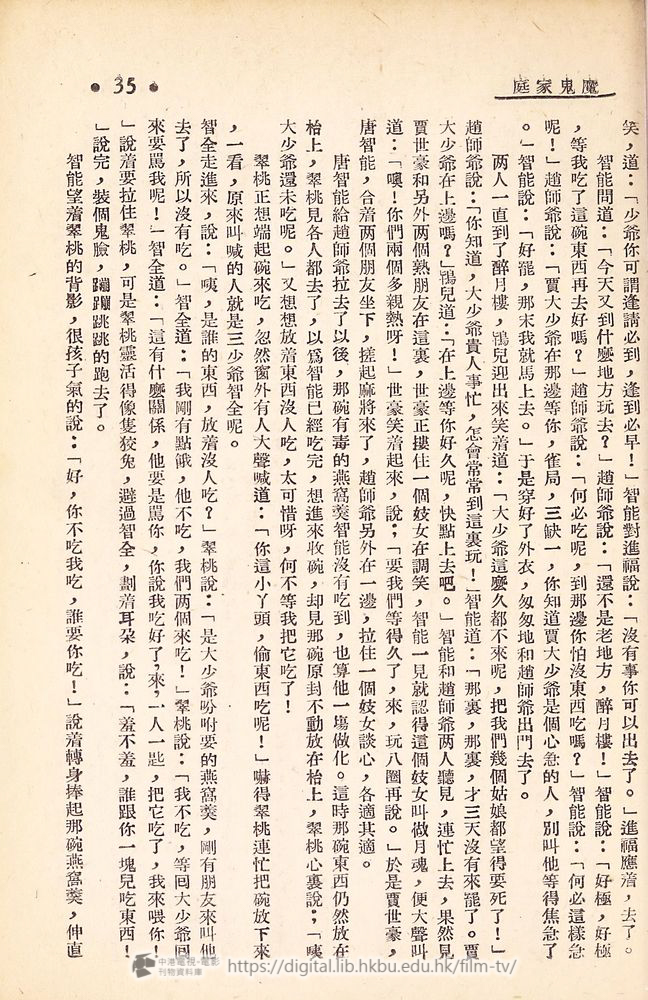 魔鬼家庭
• 35 •
笑，道：「少爺你可謂逢請必到，逢到必早！」智能對進福說：「沒有事你可以出去了。」進福應着，去了。
智能問道：「今天又到什麼地方玩去？」趙師爺說：「還不是老地方，醉月樓！」智能說：「好極，好極
，等我吃了這碗東西再去好嗎？」趙師爺說：「何必吃呢，到那邊你怕沒東西吃嗎？」智能說：「何必這樣急
呢！」趙師爺說：「賈大少爺在那邊等你，雀局，三缺一，你知道賈大少爺是個心急的人，別叫他等得焦急了
。」智能說：「好罷，那末我就馬上去。」于是穿好了外衣，匆匆地和趙師爺出門去了。
两人一直到了醉月樓，鴇兒迎出來笑着道：「大少爺這麼久都不來呢，把我們幾個姑娘都望得要死了！」
趙師爺說：「你知道，大少爺貴人事忙，怎會常常到這裏玩！」智能道：「那裏，那裏，才三天沒有來罷了。賈
大少爺在上邊嗎？」鴇兒道：「在上邊等你好久呢，快點上去吧。」智能和趙師爺两人聽見，連忙上去，果然見
賈世豪和另外两個熟朋友在這裏，世豪正摟住一個妓女在調笑，智能一見就認得這個妓女叫做月魂，便大聲叫
道：「噢！你們兩個多親熱呀！」世豪笑着起來，說；「要我們等得久了，來，玩八圈再說。」於是賈世豪，
唐智能，合着两個朋友坐下，搓起麻將來了，趙師爺另外在一邊，拉住一個妓女談心，各適其適。
唐智能給趙師爺拉去了以後，那碗有毒的燕窩羹智能沒有吃到，也算他一塲做化。這時那碗東西仍然放在
枱上，翠桃見各人都去了，以爲智能已經吃完，想進來收碗，却見那碗原封不動放在枱上，翠桃心裏說；「咦
大少爺還未吃呢。」又想想放着東西沒人吃，太可惜呀，何不等我把它吃了！
翠桃正想端起碗來吃，忽然窗外有人大聲喊道：「你這小丫頭，偷東西吃呢！」嚇得翠桃連忙把碗放下來
，一看，原來叫喊的人就是三少爺智全呢。
智全走進來，說：「咦，是誰的東西，放着沒人吃？」翠桃說：「是大少爺吩咐要的燕窩羹，剛有朋友來叫他
去了，所以沒有吃。」智全道：「我剛有點餓，他不吃，我們两個來吃！」翠桃說：「我不吃，等囘大少爺囘
來要罵我呢！」智全道：「這有什麼關係，他要是罵你，你說我吃好了，來，一人一匙，把它吃了，我來喂你！
」說着要拉住翠桃，可是翠桃靈活得像隻狡兔，避過智全，劃着耳朶，說：「羞不羞，誰跟你一塊兒吃東西！
」說完，裝個鬼臉，蹦蹦跳跳的跑去了。
智能望着翠桃的背影，很孩子氣的說：「好，你不吃我吃，誰要你吃！」說着轉身捧起那碗燕窩羹，伸直
中港電視·電影
刊物資料庫
https://digital.lib.hkbu.edu.hk/film-tv/